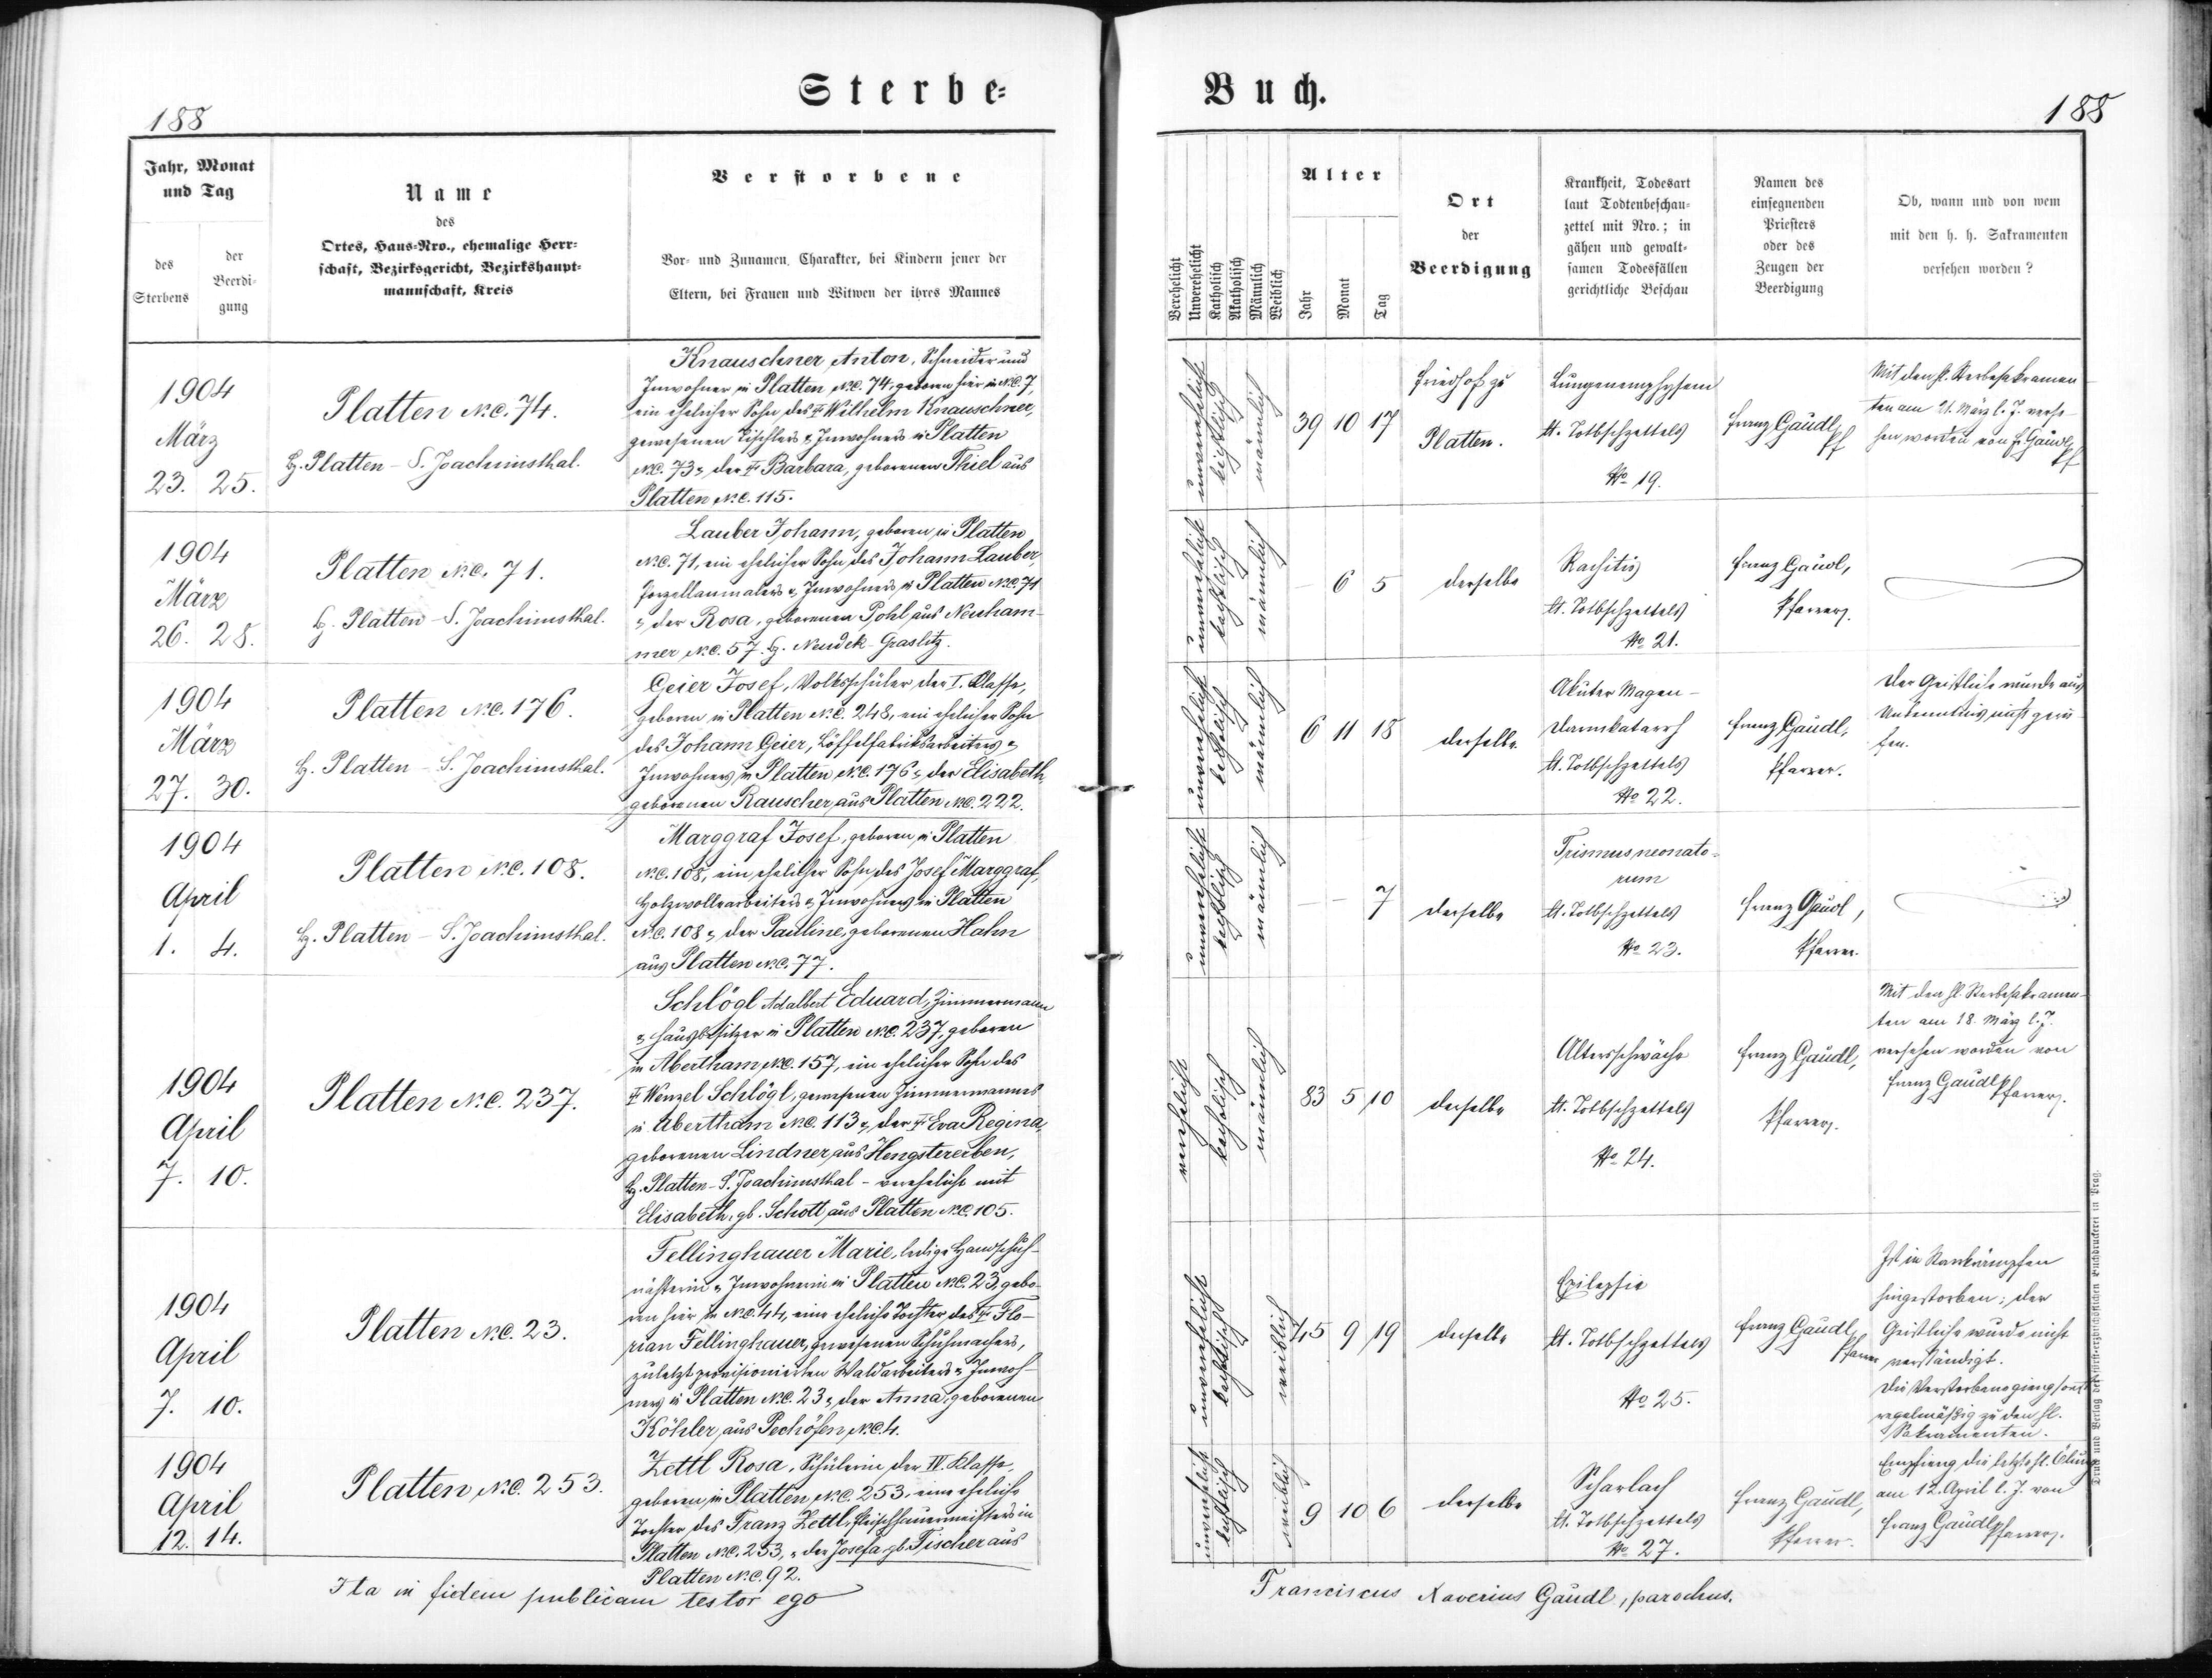 Sterbe-
188
Jahr, Monat
und Tag
des
Sterbens
der
Beerdi-
gung
Name
des
Ortes, Haus-Nro., ehemalige Herr-
schaft, Bezirksgericht, Bezirkshaupt-
mannschaft, Kreis
Verstorbene
Vor- und Zunamen, Charakter, bei Kindern jener der
Eltern, bei Frauen und Witwen der ihres Mannes
1904
März
23. 25.
Platten N.C. 74.
G. Platten - S. Joachimsthal.
Knauschner Anton, Schneider und
Inwohner in Platten N.C. 74, geboren hier in N.C. 7,
ein ehelicher Sohn des Wilhelm Knauschner,
gewesenen Tischlers & Inwohners in Platten
N.C. 73 & der Barbara, geborenen Thiel aus
Platten N.C. 115.
1904
März
26. 28.
Platten N.C. 71.
G. Platten - S. Joachimsthal.
Lauber Johann, geboren in Platten
N.C. 71, ein ehelicher Sohn des Johann Lauber,
Porzellanmalers & Inwohners in Platten N.C. 71
& der Rosa, geborenen Pohl, aus Neuham-
mer N.C. 57. G. Neudek - Graslitz.
1904
März
27. 30.
Platten N.C. 176.
G. Platten - S. Joachimsthal.
Geier Josef, Volksschüler der I. Classe,
geboren in Platten N.C. 248, ein ehelicher Sohn
des Johann Geier, Löffelfabriksarbeiters &
Inwohners in Platten N.C. 176 & der Elisabeth,
geborenen Rauscher, aus Platten N.C. 222.
1904
April
1. 4.
Platten N.C. 108.
G. Platten - S. Joachimsthal.
Marggraf Josef, geboren in Platten
N.C. 108, ein ehelicher Sohn des Josef Marggraf,
Holzwollearbeiters & Inwohners in Platten
N.C. 108 & der Pauline, geborenen Hahn
aus Platten N.C. 77.
1904
April
7. 10.
Platten N.C. 237.
Schlögl Adalbert Eduard, Zimmermann
& Hausbesitzer in Platten N.C. 237, geboren
in Abertham N.C. 157, ein ehelicher Sohn des
Wenzel Schlögl, gewesenen Zimmermannes
in Abertham N.C. 113 & der Eva Regina,
geborenen Lindner, aus Hengstererben,
G. Platten - S. Joachimsthal - verehelicht mit
Elisabeth, gb. Schott, aus Platten N.C. 105.
1904
April
7. 10.
Platten N.C. 23.
Fellinghauer Marie, ledige Handschuh-
nähterin & Inwohnerin in Platten N.C. 23, gebo-
ren hier in N.C. 44, eine eheliche Tochter des Flo-
rian Fellinghauer, gewesenen Schuhmachers,
zuletzt provisionierten Waldarbeiters & Inwoh-
ners in Platten N.C. 23 & der Anna, geborenen
Köhler, aus Pechöfen, N.C. 4.
1904
April
12. 14.
Platten N.C. 253.
Zettl Rosa, Schülerin der IV. Klasse,
geboren in Platten N.C. 253, eine eheliche
Tochter des Franz Zettl, Fleischhauermeisters in
Platten N.C. 253, & der Josefa gb. Fischer aus
Platten N.C. 92.
Ita in fidem publicam testor ego
Buch.
188
Verehelicht
Unverehelicht
Katholisch
Akatholisch
Männlich
Weiblich
Alter
Jahr
Monat
Tag
Ort
der
Beerdigung
Krankheit, Todesart
laut Todtenbeschau-
zettel mit Nro.; in
gähen und gewalt-
samen Todesfällen
gerichtliche Beschau
Namen des
einsegnenden
Priesters
oder des
Zeugen der
Beerdigung
Ob, wann und von wem
mit den h. h. Sakramenten
versehen worden?
unverehelicht
katholisch
männlich
39 10 17
Friedhof zu
Platten.
Lungenemphysem
lt. Totbschzettels
No 19.
Franz Gäudl,
Pf
Mit den hl. Sterbesakramen-
ten am 21. März l. J. verse-
hen worden von F. Gäudl,
Pf
unverehelicht
katholisch
männlich
- 6 5
derselbe
Rachitis
lt. Totbschzettels
No 21.
Franz Gäudl,
Pfarrer.
unverehelicht
katholisch
männlich
6 11 18
derselbe
Akuter Magen-
Darmkatarrh
lt. Totbschzettels
No 22.
Franz Gäudl,
Pfarrer.
Der Geistliche wurde aus
Unkenntnis nicht geru-
fen.
unverehelicht
katholisch
männlich
- - 7
derselbe
Trismus neonato-
rum
lt. Totbschzettels
No 23.
Franz Gäudl,
Pfarrer.
verehelicht
katholisch
männlich
83 5 10
derselbe
Altersschwäche
lt. Totbschzettels
No 24.
Franz Gäudl,
Pfarrer.
Mit den hl. Sterbesakramen-
ten am 18. März l. J.
versehen worden von
Franz Gäudl Pfarrer.
unverehelicht
katholisch
weiblich
45 9 19
derselbe
Epilepsie
lt. Totbschzettels
No 25.
Franz Gäudl,
Pfarrer
Ist in
hingestorben; der
Geistliche wurde nicht
verständigt.
Die Verstorbene gieng sonst
regelmäßig zu den hl.
Sakramenten.
unverehelicht
katholisch
weiblich
9 10 6
derselbe
Scharlach
lt. Totbschzettels
No 27.
Franz Gäudl,
Pfarrer.
Empfieng die letzte hl. Ölung
am 12. April l. J. von
Franz Gäudl Pfarrer.
Franciscus Xaverius Gäudl, parochus.
Druck und Verlag der fürst-erzbischöflichen Buchdruckerei in Prag.